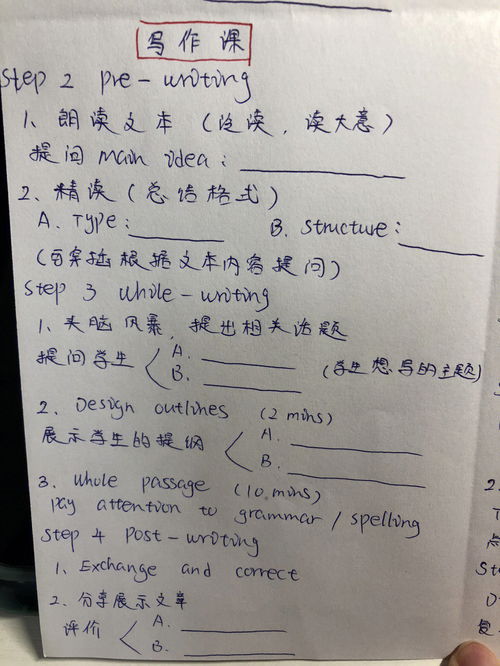 写作课
Step 2 pre-writing
1、朗读文本（泛读，读大意）
提问 main idea：
2、精读（总结格式）
A. Type：
B. Structure：
（穿插根据文本内容提问）
Step 3 While-writing
1、头脑风暴，提出相关话题
提问学生
A.
B.
（学生想写的主题）
2. Design outlines (2 mins)
展示学生的提纲
A.
B.
3. Whole passage (10 mins)
pay attention to grammar / spelling
Step 4 Post-writing
1. Exchange and correct
2. 分享展示文章
评价
A.
B.
2.
点
St